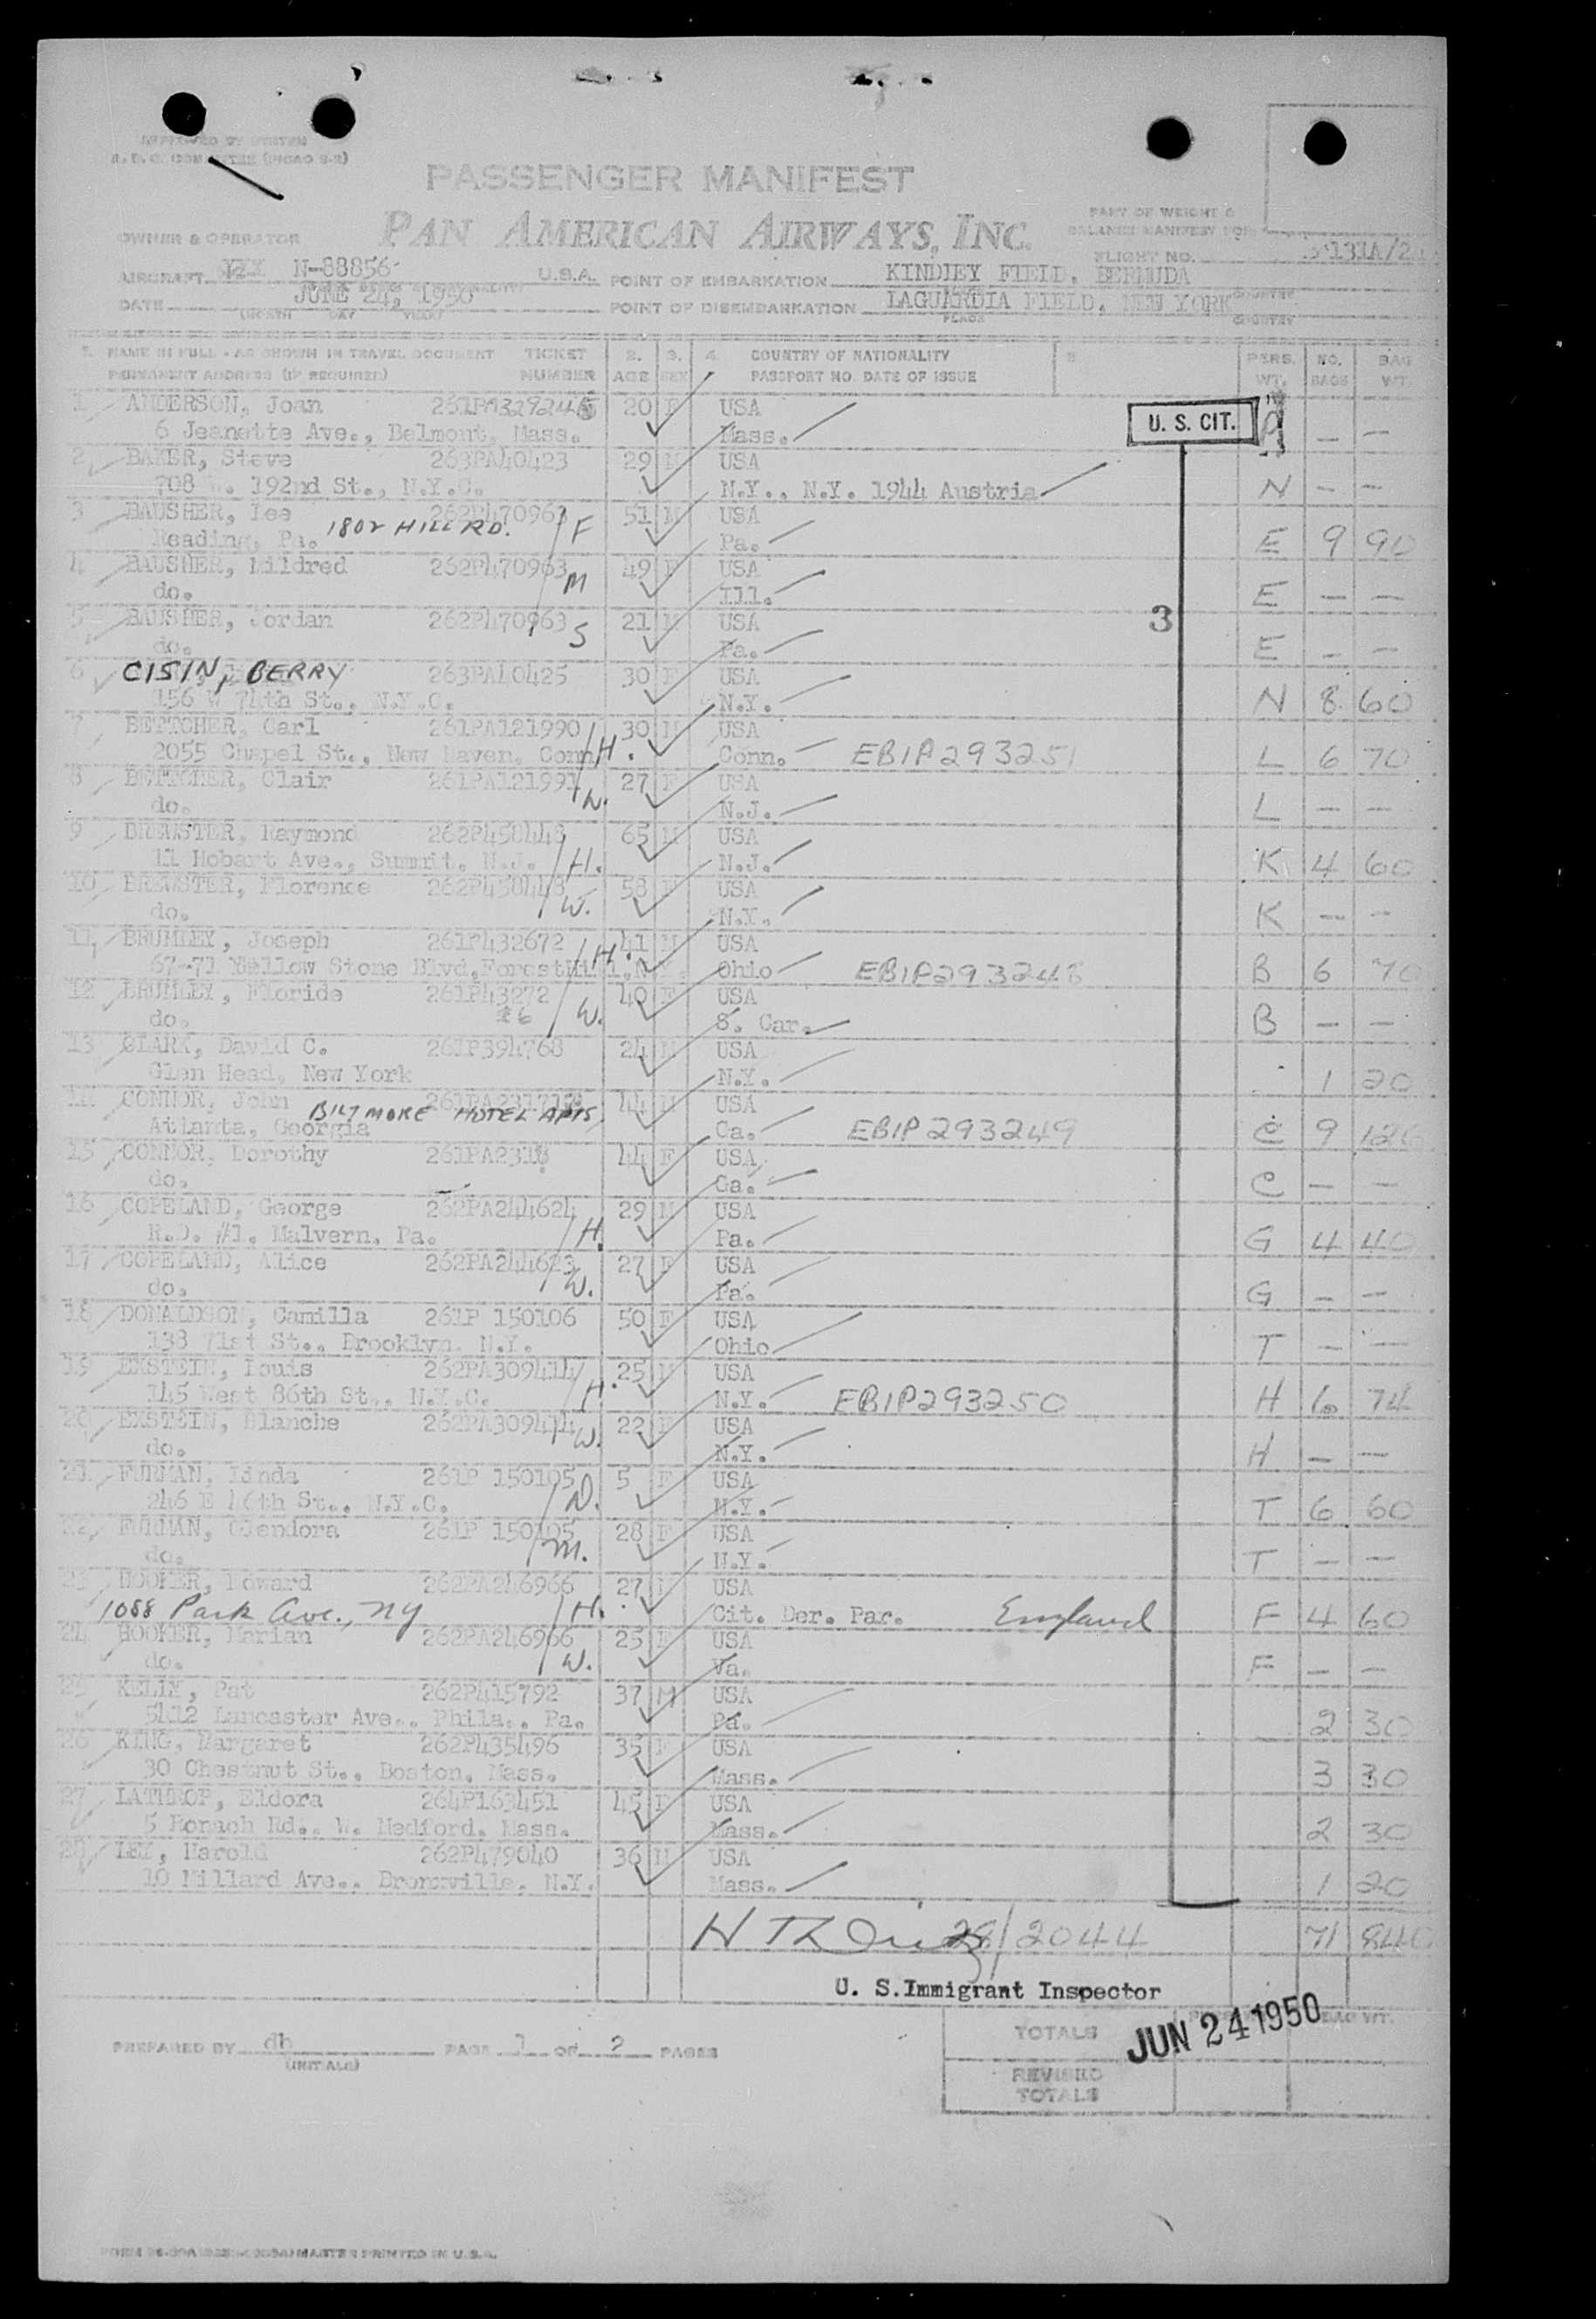 APPROVED BY SYSTEM
PASSENGER MANIFEST
PAN AMERICAN AIRWAYS, INC.
PART OF WEIGHT &
BALANCE MANIFEST FOR
OWNER & OPERATOR
FLIGHT NO. 131A/2
AIRCRAFT N-88856 U.S.A. POINT OF EMBARKATION KINDLEY FIELD, BERMUDA
DATE JUNE 24, 1950 POINT OF DISEMBARKATION LAGUARDIA FIELD, NEW YORK
MONTH DAY YEAR PLACE COUNTRY
1. NAME IN FULL - AS SHOWN IN TRAVEL DOCUMENT TICKET 2. 3. 4. COUNTRY OF NATIONALITY PERS. NO. BAG
PERMANENT ADDRESS (IF REQUIRED) NUMBER AGE SEX PASSPORT NO. DATE OF ISSUE WT. BAGS WT.
1 ANDERSON, Joan 261PA329245 20 F USA U. S. CIT.
6 Jeanette Ave., Belmont, Mass. Mass. — —
2 BAKER, Steve 263PA40423 29 M USA
708 W. 192nd St., N.Y.C. N.Y., N.Y. 1944 Austria N — —
3 BAUSHER, Lee 262P470963 51 M USA
Reading, Pa. 1802 HILL RD. F Pa. E 9 90
4 BAUSHER, Mildred 262P470963 49 F USA
do. M Ill. E — —
5 BAUSHER, Jordan 262P470963 21 M USA 3
do. S Pa. E — —
6 CISIN, BERRY 263PA40425 30 F USA
156 W 74th St., N.Y.C. N.Y. N 8 60
7 BETTCHER, Carl 261PA121990 30 M USA
2055 Chapel St., New Haven, Conn. H. Conn. EBIP293251 L 6 70
8 BETTCHER, Clair 261PA121991 27 F USA
do. W. N.J. L — —
9 BREWSTER, Raymond 262P458448 65 M USA
11 Hobart Ave., Summit, N.J. H. N.J. K 4 60
10 BREWSTER, Florence 262P458448 58 F USA
do. W. N.Y. K — —
11 BRUMLEY, Joseph 261P432672 H. 41 M USA
67-71 Yellow Stone Blvd, Forest Hill, N.Y. Ohio EBIP293248 B 6 70
12 BRUMLEY, Floride 261P43272 40 F USA
do. 26 W. S. Car. B — —
13 CLARK, David C. 261P394768 24 M USA
Glen Head, New York N.Y. 1 20
14 CONNOR, John 44 M USA
Atlanta, Georgia BILTMORE HOTEL APTS, Ga. EBIP293249 C 9 126
15 CONNOR, Dorothy 261PA2318 44 F USA
do. Ga. C — —
16 COPELAND, George 262PA244624 29 M USA
R.D. #1. Malvern, Pa. H. Pa. G 4 40
17 COPELAND, Alice 262PA244623 27 F USA
do. W. Pa. G — —
18 DONALDSON, Camilla 261P 150106 50 F USA
138 71st St., Brooklyn, N.Y. Ohio T — —
19 EXSTEIN, Louis 262PA309414 25 M USA
145 West 86th St., N.Y.C. H. N.Y. EBIP293250 H 6 74
20 EXSTEIN, Blanche 262PA309414 22 F USA
do. W. N.Y. H — —
21 FURMAN, Linda 261P 150105 5 F USA
246 E 46th St., N.Y.C. D. N.Y. T 6 60
22 FURMAN, Glendora 261P 150105 28 F USA
do. M. N.Y. T — —
23 HOOKER, Howard 262PA246966 27 M USA
1088 Park Ave., NY H. Cit. Der. Par. England F 4 60
24 HOOKER, Marian 262PA246966 25 F USA
do. W. Va. F — —
25 KELLY, Pat 262P415792 37 M USA
5412 Lancaster Ave., Phila., Pa. Pa. 2 30
26 KING, Margaret 262P435496 35 F USA
30 Chestnut St., Boston, Mass. Mass. 3 30
27 LATHROP, Eldora 264P163451 45 F USA
5 Ronach Rd., W. Medford, Mass. Mass. 2 30
28 LEY, Harold 262P479040 36 M USA
10 Millard Ave., Bronxville, N.Y. Mass. 1 20
28/2044 71 840
U. S. Immigrant Inspector
JUN 24 1950 BAG WT.
TOTALS
PREPARED BY db PAGE 1 OF 2 PAGES
(INITIALS)
REVISED
TOTALS
MASTER PRINTED IN U.S.A.